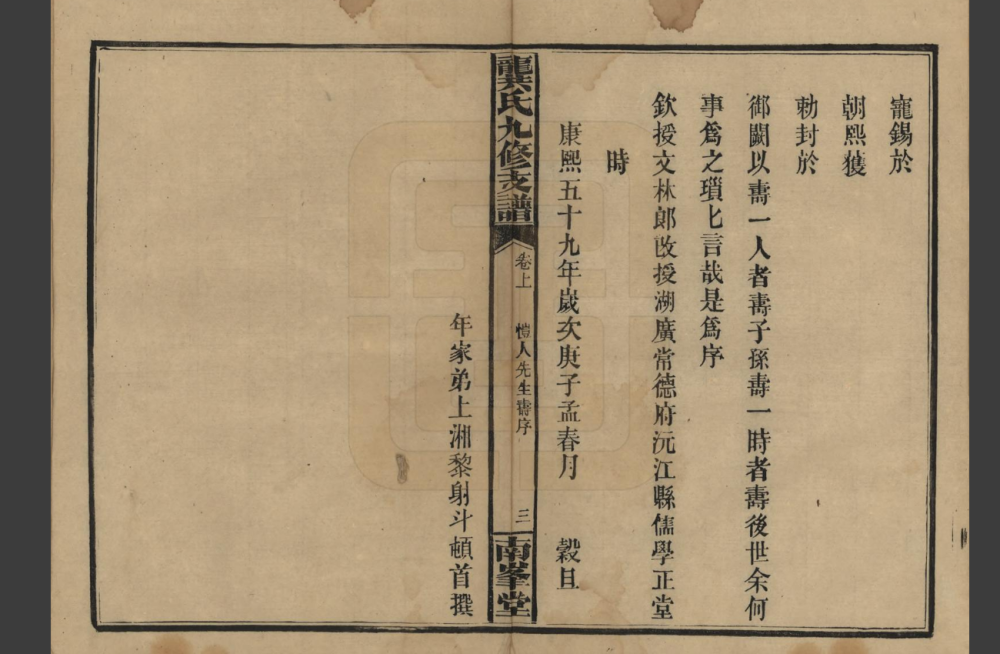 寵錫於
朝熙獲
勅封於
御闕以壽一人者壽子孫壽一時者壽後世余何
事爲之瑣匕言哉是爲序
欽授文林郎改授湖廣常德府沅江縣儒學正堂
時
康熙五十九年歲次庚子孟春月　穀旦
龍㳟氏九修支譜
卷上　愷人先生壽序　三
南峯堂
年家弟上湘黎射斗頓首撰